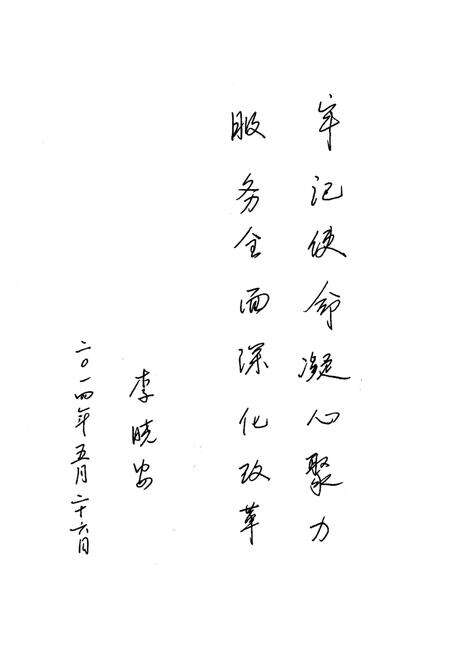 牢记使命凝心聚力
服务全面深化改革
李晓安
二〇一四年五月二十六日